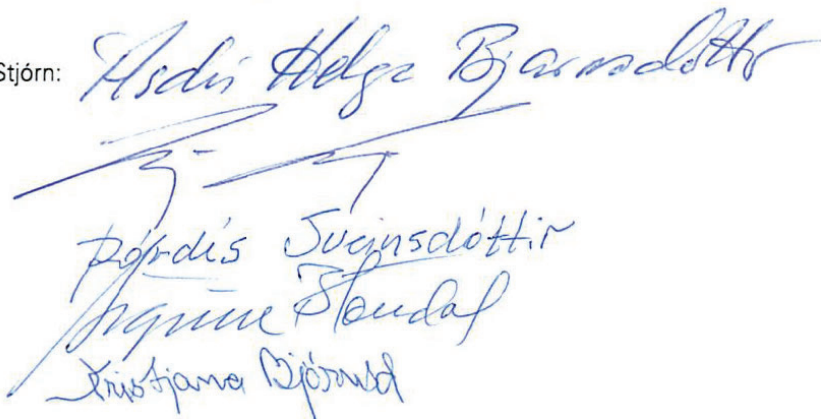 Stjórn: Ásdís Helga Bjarnadóttir
Þórdís Sveinsdóttir
Blöndal
Kristjana Björnsd